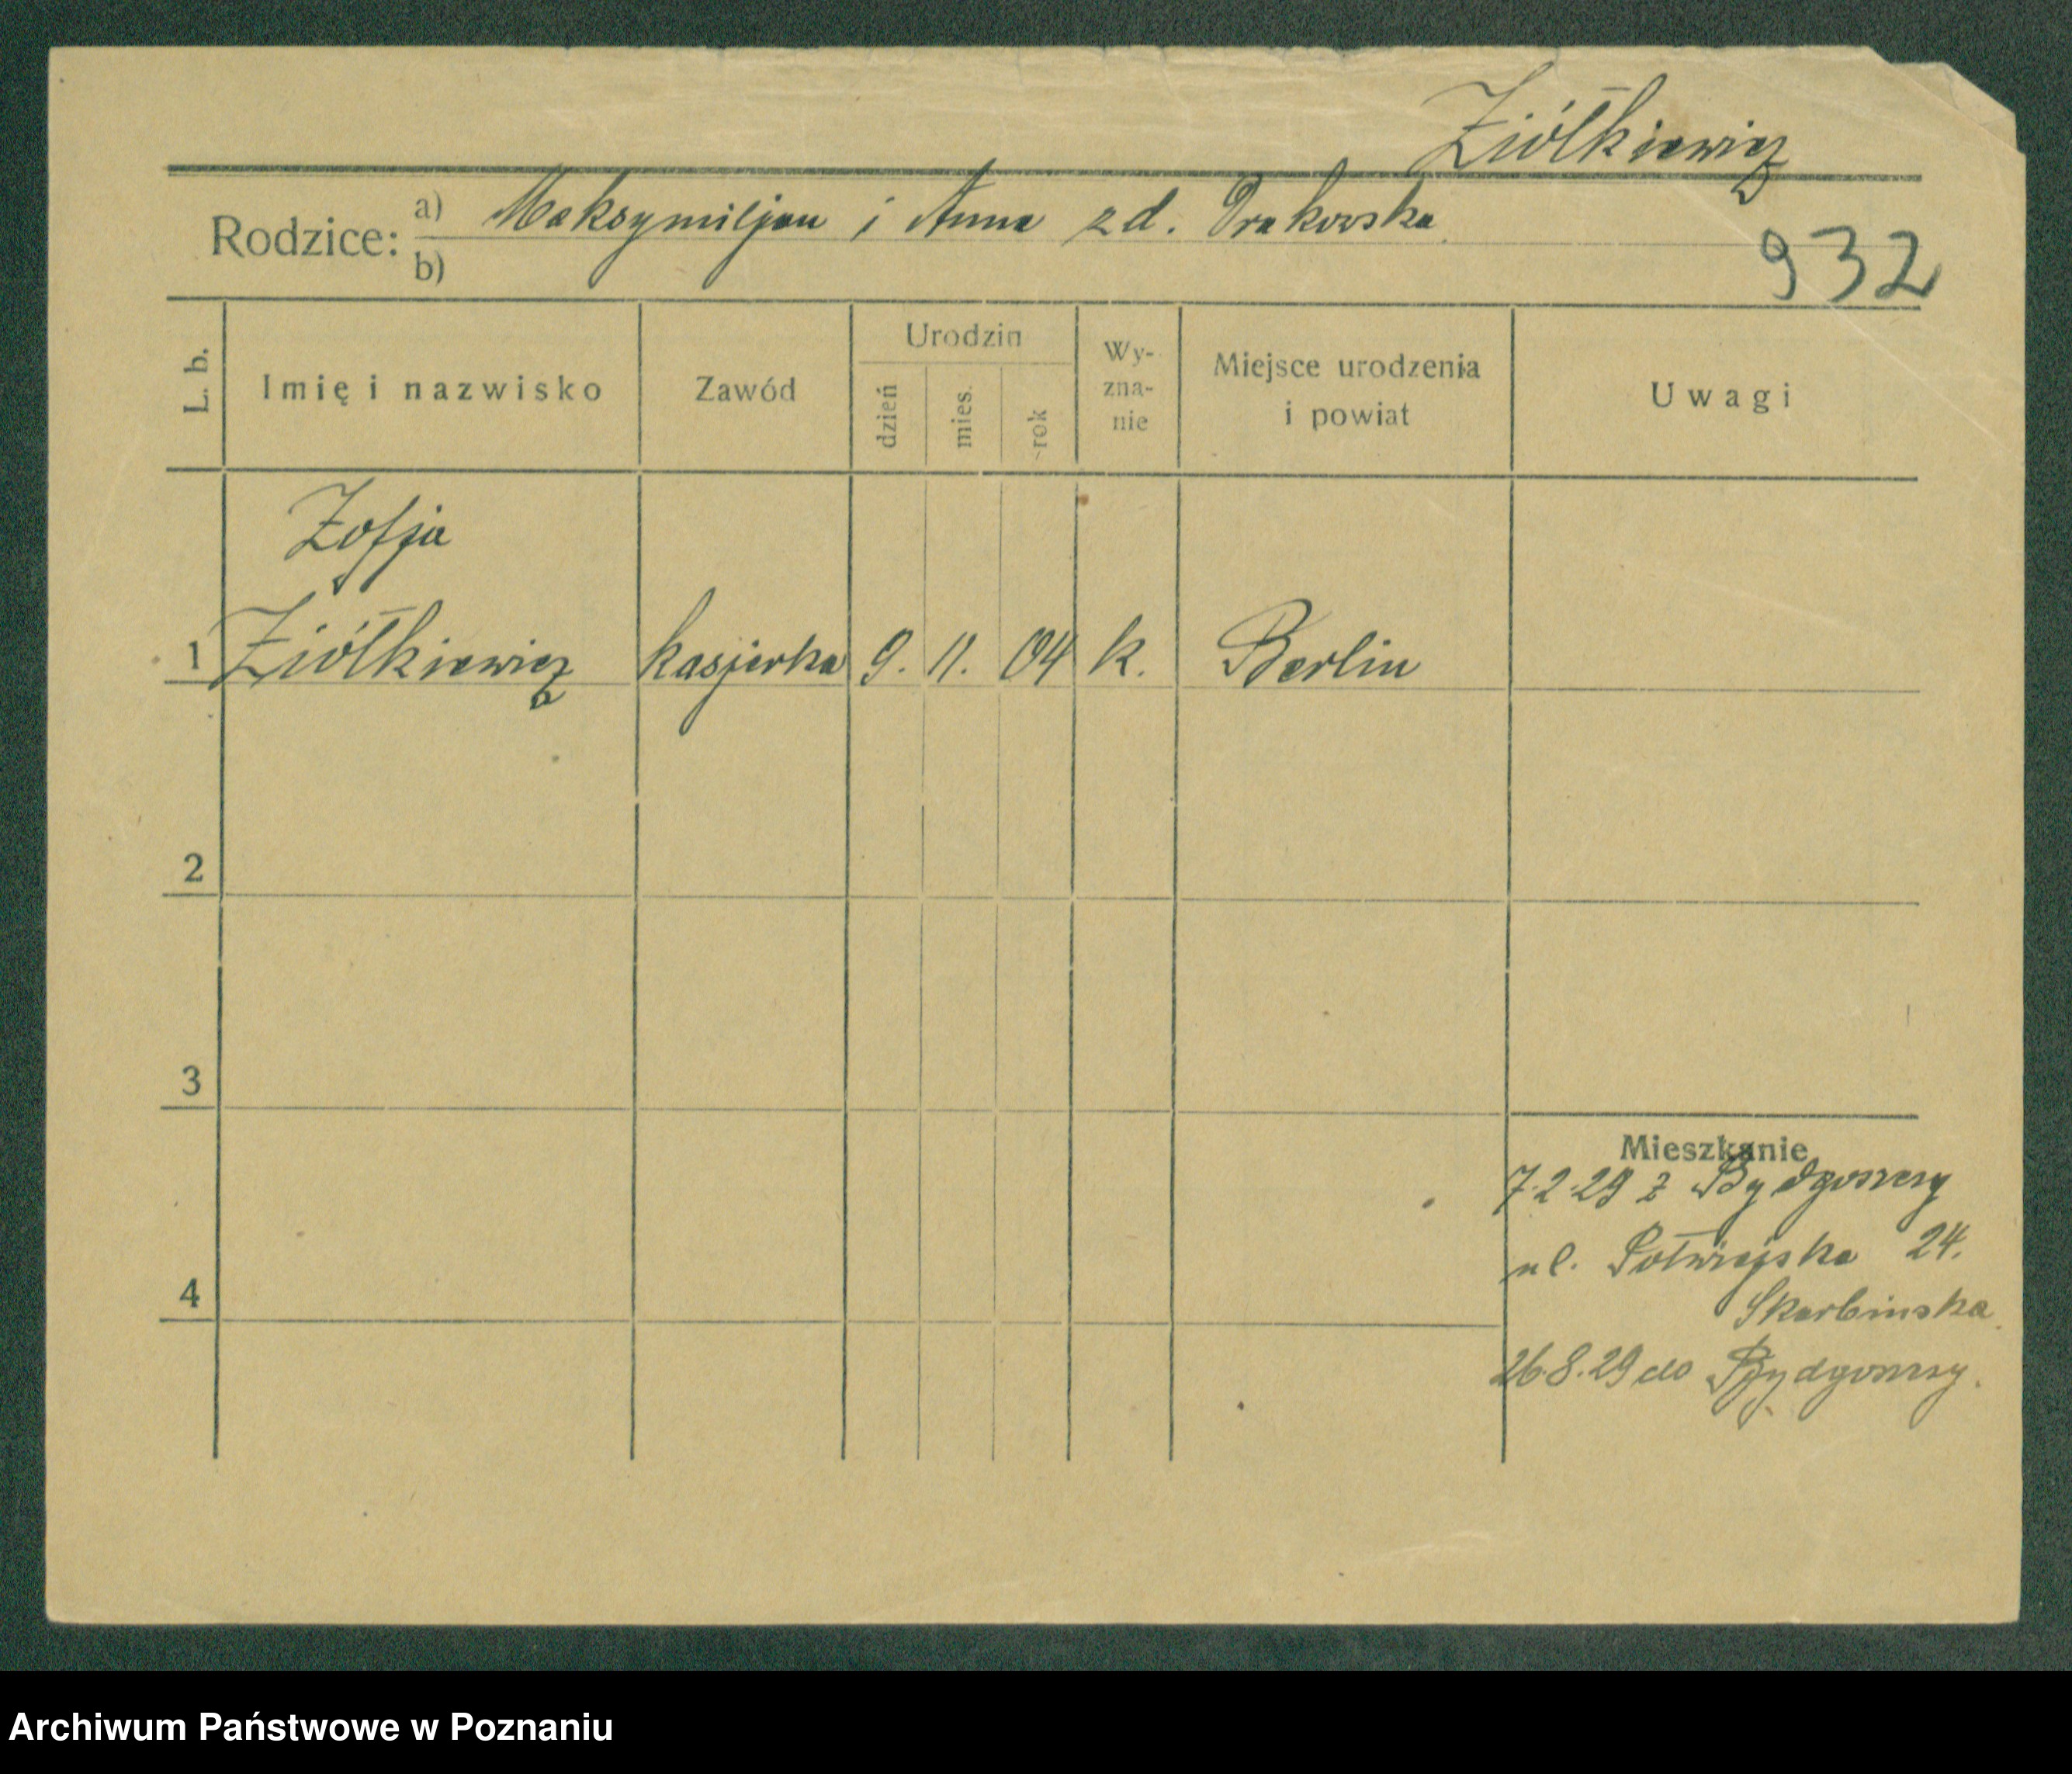 Ziółkiewicz
Rodzice: a) Maksymiljan i Anna z d. Drakowska
b)
932
L. b. Imię i nazwisko Zawód Urodzin dzień mies. rok Wy-zna-nie Miejsce urodzenia i powiat Uwagi
Zofja
1 Ziółkiewicz kasjerka 9. 11. 04 k. Berlin
2
3
Mieszkanie
7.2.29 z Bydgoszczy
ul. Półwiejska 24.
4
Skarbinska
26.8.29 do Bydgoszczy.
Archiwum Państwowe w Poznaniu